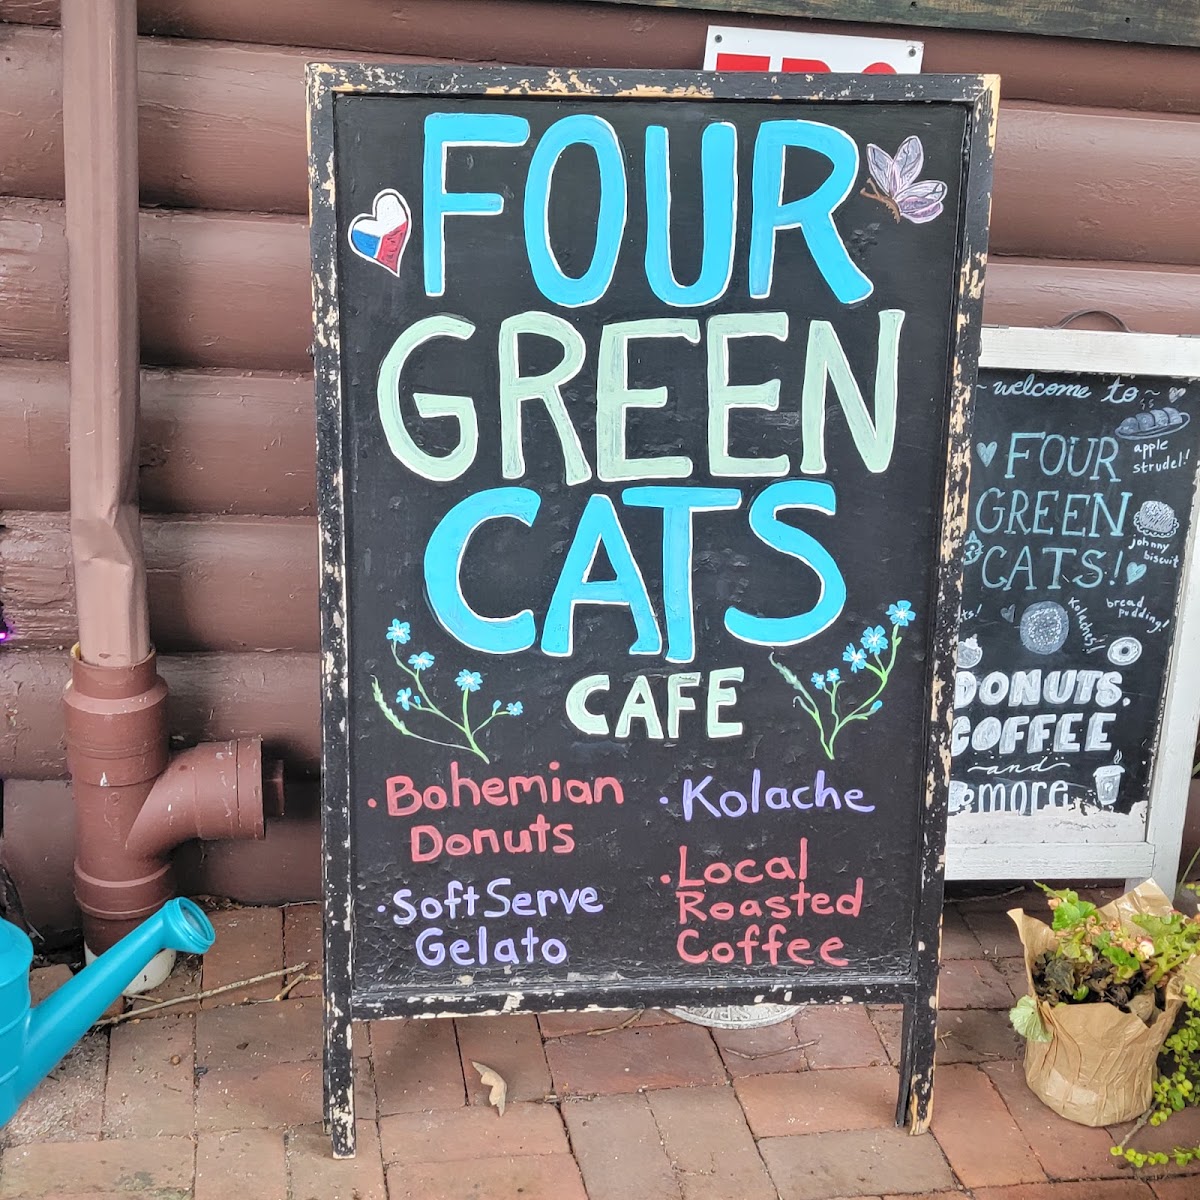 FOUR
GREEN
CATS
CAFE
· Bohemian
Donuts
· Soft Serve
Gelato
· Kolache
· Local
Roasted
Coffee
~ welcome to ~
FOUR
GREEN
CATS!
apple
strudel!
johnny
biscuit
Kolaches!
bread
pudding!
DONUTS,
COFFEE
~and~
more